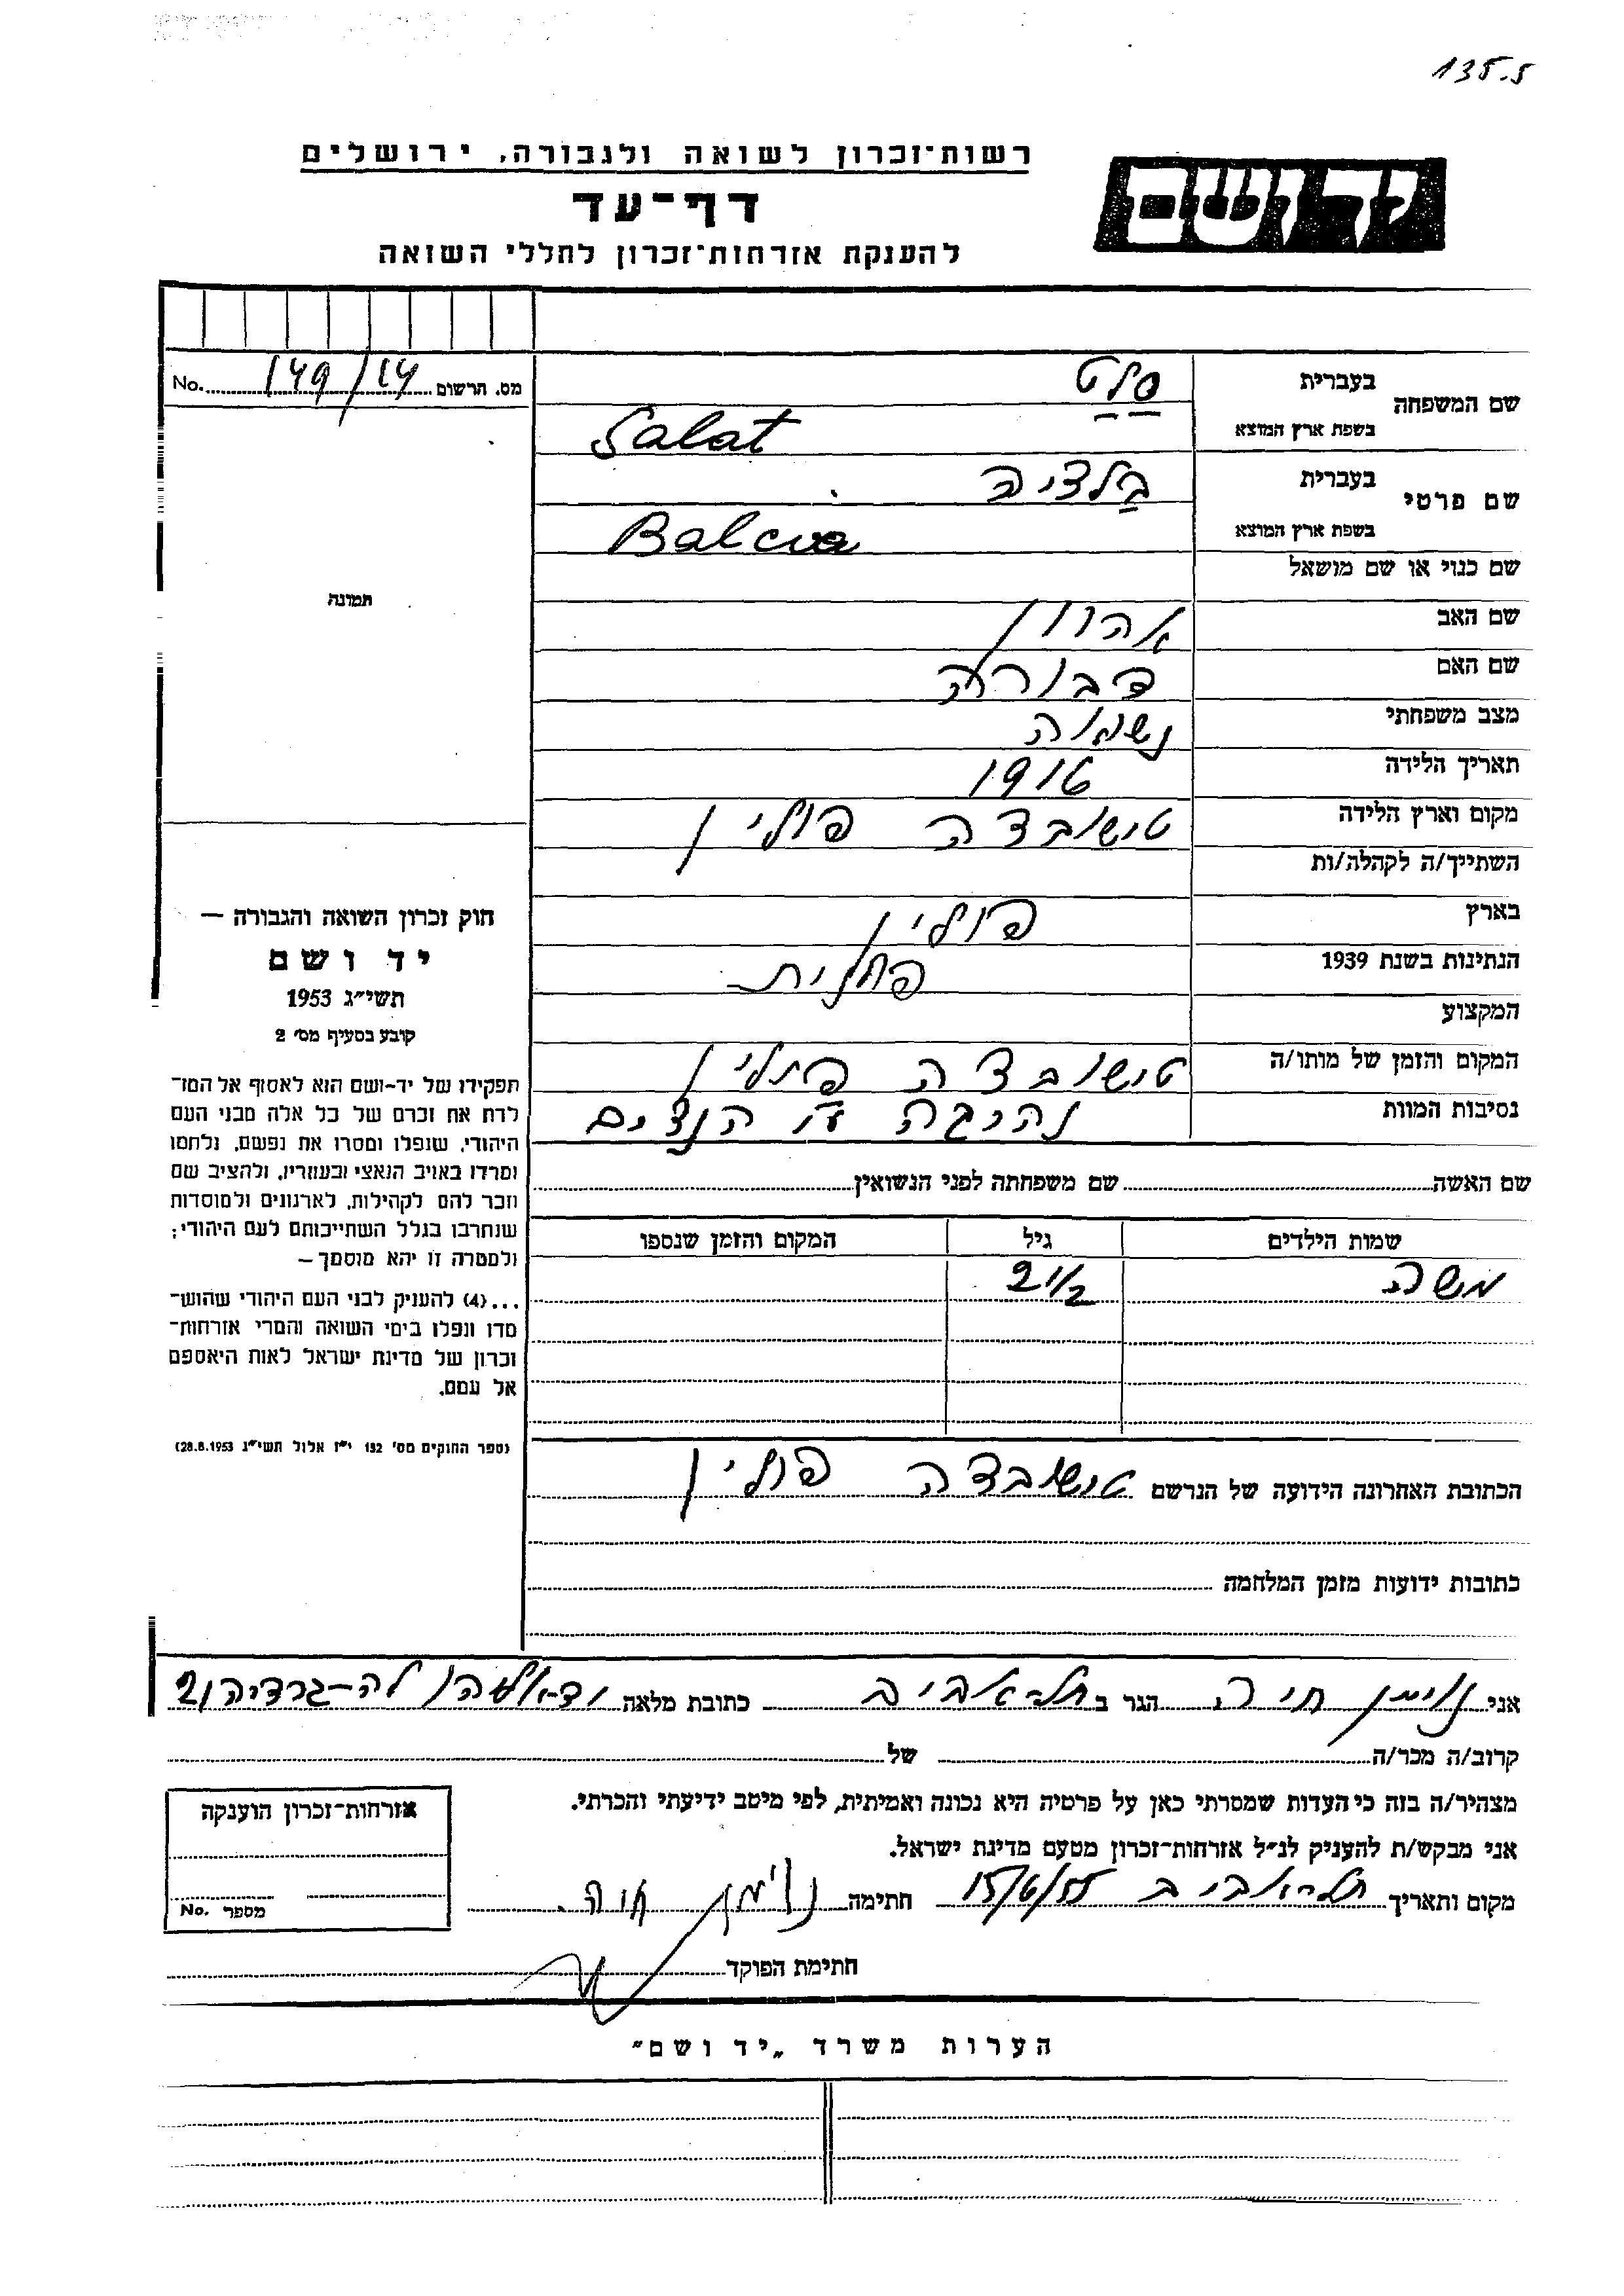 135.5
רשות־זכרון לשואה ולגבורה, ירושלים
יד ושם
דף־עד
להענקת אזרחות־זכרון לחללי השואה
מס. הרשום 149/14 No.
שם המשפחה
בעברית סלט
בשפת ארץ המוצא Salat
שם פרטי
בעברית בלציה
בשפת ארץ המוצא
שם כנוי או שם מושאל
תמונה
שם האב אהרון
שם האם דבורה
מצב משפחתי נשואה
תאריך הלידה 1916
מקום וארץ הלידה טישובצה פולין
השתייך/ה לקהלה/ות
בארץ פולין
הנתינות בשנת 1939 פולנית
המקצוע
המקום והזמן של מותו/ה טישובצה פולין
נסיבות המוות נהרגה ע"י הנצים
חוק זכרון השואה והגבורה —
יד ושם
תשי״ג 1953
קובע בסעיף מס׳ 2
תפקידו של יד-ושם הוא לאסוף אל המו־
לדת את זכרם של כל אלה מבני העם
היהודי, שנפלו ומסרו את נפשם, נלחמו
ומרדו באויב הנאצי ובעוזריו, ולהציב שם
וזכר להם לקהילות, לארגונים ולמוסדות
שנחרבו בגלל השתייכותם לעם היהודי;
ולמטרה זו יהא מוסמך —
...(4) להעניק לבני העם היהודי שהוש־
מדו ונפלו בימי השואה והמרי אזרחות־
זכרון של מדינת ישראל לאות היאספם
אל עמם.
(ספר החוקים מס׳ 132 י״ז אלול תשי״ג 28.8.1953)
שם האשה שם משפחתה לפני הנשואין
שמות הילדים גיל המקום והזמן שנספו
משה 2 1/2
הכתובת האחרונה הידועה של הנרשם טישובצה פולין
כתובות ידועות מזמן המלחמה
אני נוימן חיה הגר ב תל־אביב כתובת מלאה יד־אליהו לה־גרדיה
קרוב/ה מכר/ה של
מצהיר/ה בזה כי העדות שמסרתי כאן על פרטיה היא נכונה ואמיתית, לפי מיטב ידיעתי והכרתי.
אני מבקש/ת להעניק לנ״ל אזרחות־זכרון מטעם מדינת ישראל.
מקום ותאריך תל־אביב 15/6/55 חתימה נוימן חיה
חתימת הפוקד
אזרחות־זכרון הוענקה
מספר No.
הערות משרד „יד ושם״